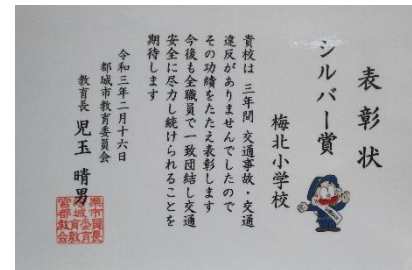 表彰状
シルバー賞
梅北小学校
貴校は 三年間 交通事故・交通
違反がありませんでしたので
その功績をたたえ表彰します
今後も全職員で一致団結し交通
安全に尽力し続けられることを
期待します
令和三年二月十六日
都城市教育委員会
教育長 児玉 晴男